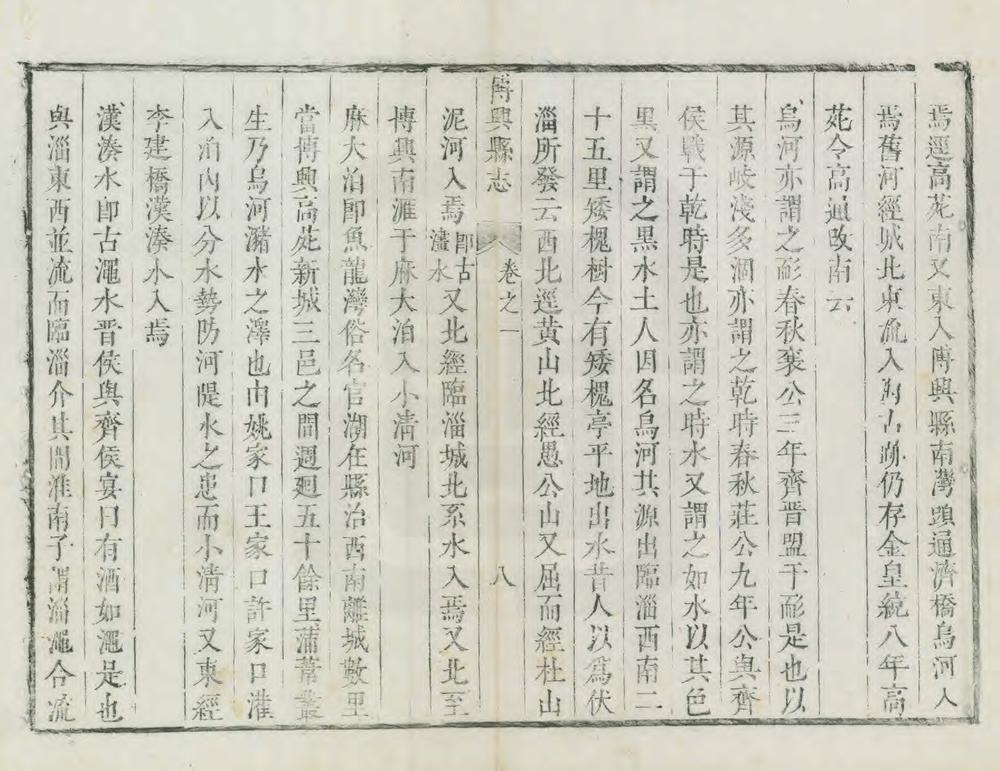 焉逕高苑南又東入博興縣南灣頭通濟橋烏河入
焉舊河經城北東流入海古跡仍存金皇統八年高
苑令高通改南云
烏河亦謂之耏春秋襄公三年齊晋盟于耏是也以
其源岐淺多涸亦謂之乾時春秋莊公九年公與齊
侯戰于乾時是也亦謂之時水又謂之如水以其色
黑又謂之黑水土人因名烏河其源出臨淄西南二
十五里矮槐樹今有矮槐亭平地出水昔人以爲伏
淄所發云西北逕黄山北經愚公山又屈而經杜山
博興縣志 卷之一 八
泥河入焉卽古澅水又北經臨淄城北系水入焉又北至
博興南滙于麻大泊入小淸河
麻大泊卽魚龍灣俗名官湖在縣治西南離城數里
當博興高苑新城三邑之間週廻五十餘里蒲葦叢
生乃烏河瀦水之澤也由姚家口王家口許家口灌
入泊內以分水勢防河隄水之患而小淸河又東經
李建橋漢湊水入焉
漢湊水卽古澠水晋侯與齊侯宴曰有酒如澠是也
與淄東西並流而臨淄介其間淮南子謂淄澠合流